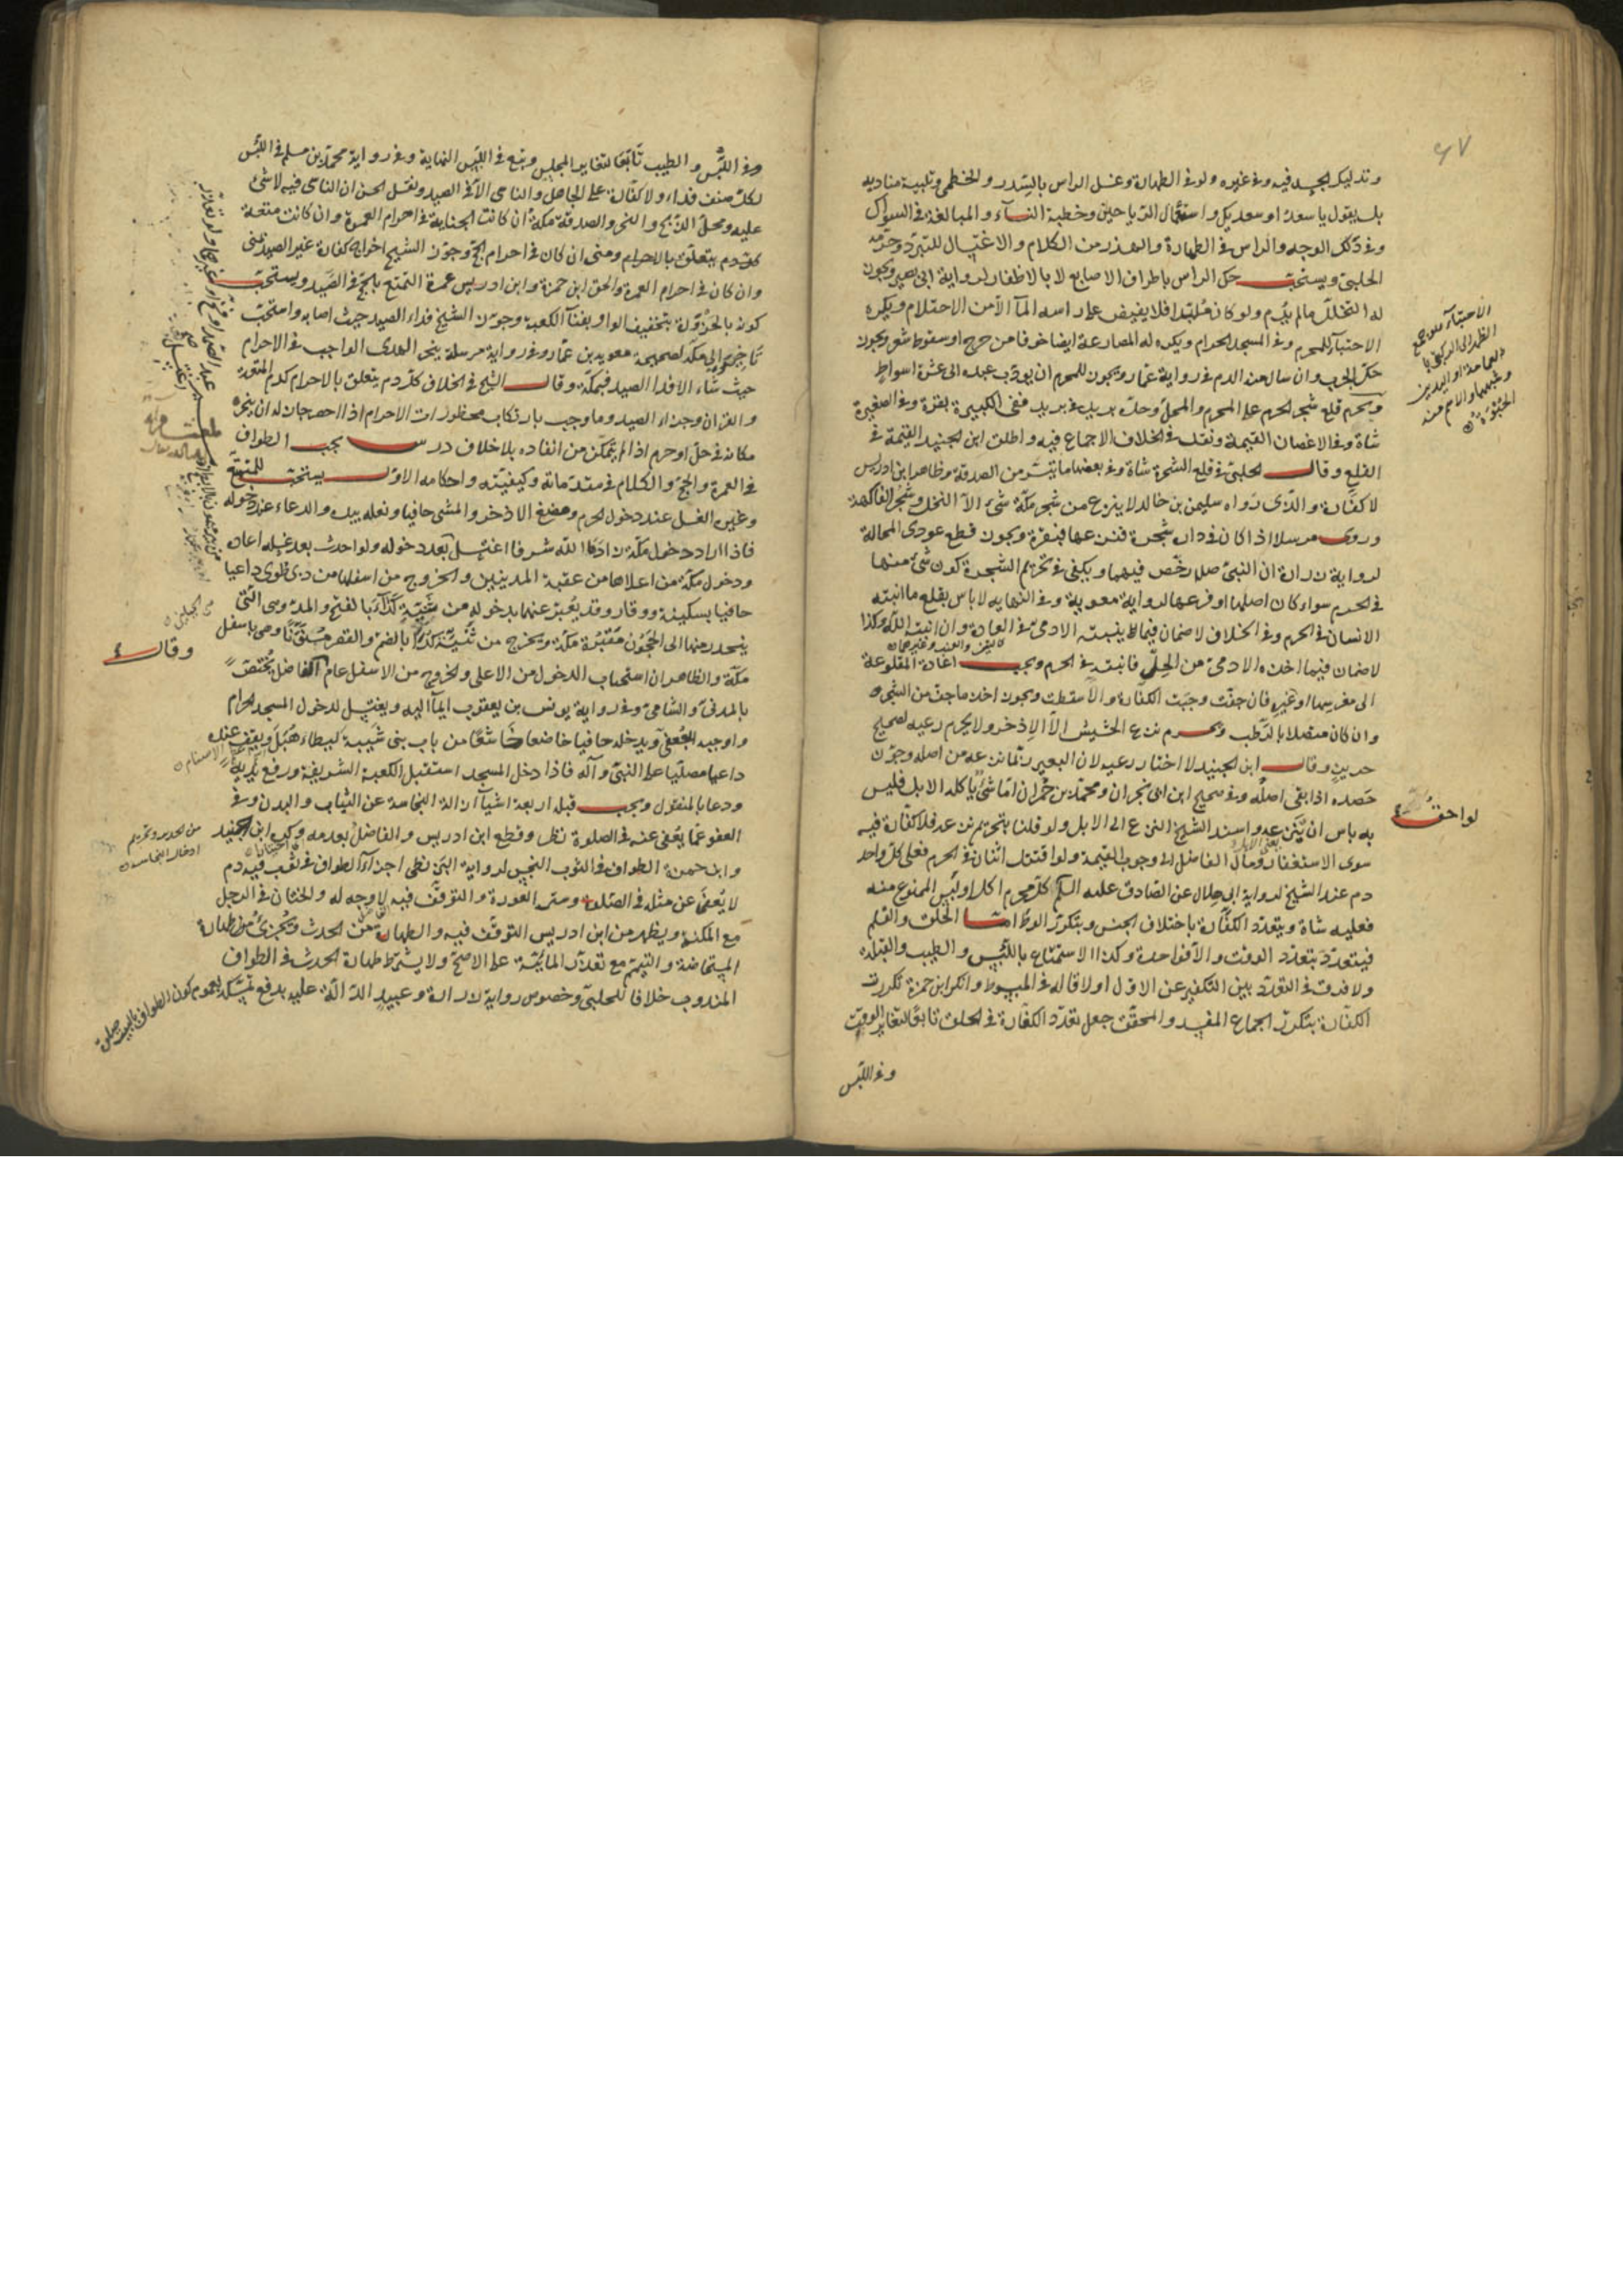 وتدليك الجسد فيه وفي غيره ولو في الطهارة وغسل الراس بالسدر والخطمي وتلبية مناديه
بل يقول يا سعد او سعديك واستعمال الرياحين وخطبة النساء والمبالغة في السواك
وفي دلك الوجه والراس في الطهارة والهذر من الكلام والاغتسال للتبرد وحرمه
الحلبي ويستحب حك الراس باطراف الاصابع لا بالاظفار لرواية ابي بصير ويجوز
له التخلل ما لم يدم ولو كان ملبدا فلا يفيض على راسه الماء الا من الاحتلام ويكره
الاحتباء للمحرم وفي المسجد الحرام ويكره له المصارعة ايضا خوفا من جرح او سقوط شعر ويجوز
حك الجرب وان سال منه الدم في رواية عمار ويجوز للمحرم ان يودب عبده الى عشرة اسواط
ويحرم قلع شجر الحرم على المحرم والمحل وحده بريد في بريد ففي الكبيرة بقرة وفي الصغيرة
شاة وفي الاغصان القيمة ونقل في الخلاف الاجماع فيه واطلق ابن الجنيد القيمة في
القلع وقال الحلبي في قلع الشجرة شاة وفي بعضها ما تيسر من الصدقة وظاهر ابن ادريس
لا كفارة والذي رواه سليمن بن خالد لا ينزع من شجر مكة شيء الا النخل وشجر الفاكهة
وروى مرسلا اذا كان في داره شجرة فنزعها فبقرة ويجوز قطع عودي المحالة
لرواية زرارة ان النبي صلى رخص فيهما ويكفي في تحريم الشجرة كون شيء منها
في الحرم سواء كان اصلها او فرعها لرواية معوية وفي النهاية لا باس بقلع ما انبته
الانسان في الحرم وفي الخلاف لا ضمان فيما ينبته الادمي في العادة وان انبته الله وكذا
لا ضمان فيما اخذه الادمي من الحل فانبته في الحرم ويجب اعادة المقلوعة
الى مغرسها او غيره فان جفت وجبت الكفارة والا سقطت ويجوز اخذ ما جف من الشجر
وان كان متصلا بالرطب ويحرم نزع الحشيش الا الاذخر ولا يحرم رعيه لصحيح
حريز وقال ابن الجنيد لا اختار رعيه لان البعير ربما نزعه من اصله وجوز
حصده اذا بقي اصله وفي صحيح ابن ابي نجران ومحمد بن حمران اما شيء ياكله الابل فليس
به باس ان ينزعه واسند الشيخ النزع الى الابل ولو قلنا بتحريم نزعه فلا كفارة فيه
سوى الاستغفار ومال الفاضل الى وجوب القيمة ولو اقتتل اثنان في الحرم فعلى كل واحد
دم عند الشيخ لرواية ابي هلال عن الصادق عليه السلم كل محرم اكل او لبس الممنوع منه
فعليه شاة ويتعدد الكفارة باختلاف الجنس وبتكرر الوطء اما الحلق والقلم
فيتعدد بتعدد الوقت والا فواحدة وكذا الاستمتاع باللبس والطيب والقبلة
ولا فرق في التعدد بين التكفير عن الاول اولا قاله في المبسوط وانكر ابن حمزة تكرر
الكفارة بتكرر الجماع المفسد والمحقق جعل تعدد الكفارة في الحلق تابعا لتغاير الوقت
وفي اللبس
الاحتباء هو جمع
الظهر الى الركبتين با
لعمامة او اليدين
وشبههما والاسم منه
الحبوة
لواحق
وفي اللبس والطيب تابعا لتغاير المجلس وتبع في اللبس النهاية وفي رواية محمد بن مسلم في اللبس
لكل صنف فداء ولا كفارة على الجاهل والناسي الا في الصيد ونقل الحسن ان الناسي فيه لا شيء
عليه ومحل الذبح والنحر والصدقة مكة ان كانت الجناية في احرام العمرة وان كانت متعة
ومنى ان كان في احرام الحج وجوز الشيخ اخراج كفارة غير الصيد بمنى
وان كان في احرام العمرة والحق ابن حمزة وابن ادريس عمرة التمتع بالحج في الصيد ويستحب
كونه بالحزورة بتخفيف الواو بفناء الكعبة وجوز الشيخ فداء الصيد حيث اصابه واستحب
تاخيره الى مكة لصحيحة معوية بن عمار وفي رواية مرسلة ينحر الهدي الواجب في الاحرام
حيث شاء الا فداء الصيد فبمكة وقال الشيخ في الخلاف كل دم يتعلق بالاحرام كدم المتعة
والقران وجزاء الصيد وما وجب بارتكاب محظورات الاحرام اذا احصر جاز له ان ينحره
مكانه في حل او حرم اذا لم يتمكن من انفاذه بلا خلاف درس يجب الطواف
في العمرة والحج والكلام في مقدماته وكيفيته واحكامه الاول يستحب للمتمتع
وغيره الغسل عند دخول الحرم ومضغ الاذخر والمشي حافيا ونعله بيده والدعاء عند دخوله
فاذا اراد دخول مكة زادها الله شرفا اغتسل بعد دخوله ولو احدث بعد غسله اعاده
ودخول مكة من اعلاها من عقبة المدنيين والخروج من اسفلها من ذي طوى داعيا
حافيا بسكينة ووقار وقد يعبر عنهما بدخوله من ثنية كداء بالفتح والمد وهي التي
ينحدر منها الى الحجون مقبرة مكة ويخرج من ثنية كدا بالضم والقصر منونا وهي باسفل
مكة والظاهر ان استحباب الدخول من الاعلى والخروج من الاسفل عام الفاضل يختص
بالمدني والشامي وفي رواية يونس بن يعقوب ايماء اليه ويغتسل لدخول المسجد الحرام
واوجبه الجعفي ويدخله حافيا خاضعا خاشعا من باب بني شيبة ليطاء هبل ويقف عنده
داعيا مصليا على النبي وآله فاذا دخل المسجد استقبل الكعبة الشريفة ورفع يديه
ودعا بالمنقول ويجب قبله اربعة اشياء ازالة النجاسة عن الثياب والبدن وفي
العفو عما يعفى عنه في الصلوة نظر وقطع ابن ادريس والفاضل بعدمه وكره ابن الجنيد
وابن حمزة الطواف في الثوب النجس لرواية البزنطي اجزاء الطواف في ثوب فيه دم
لا يعفى عن مثله في الصلوة وستر العورة والتوقف فيه لا وجه له والختان في الرجل
مع المكنة ويظهر من ابن ادريس التوقف فيه والطهارة من الحدث ويجزئ طهارة
المستحاضة والتيمم مع تعذر المائية على الاصح ولا يشترط طهارة الحدث في الطواف
المندوب خلافا للحلبي وخصوص رواية زرارة وعبيد الدالة عليه يدفع تمسكه بعموم كون الطواف بالبيت صلوة
وقال
من الحديد وتحريم
ادخال النجاسة